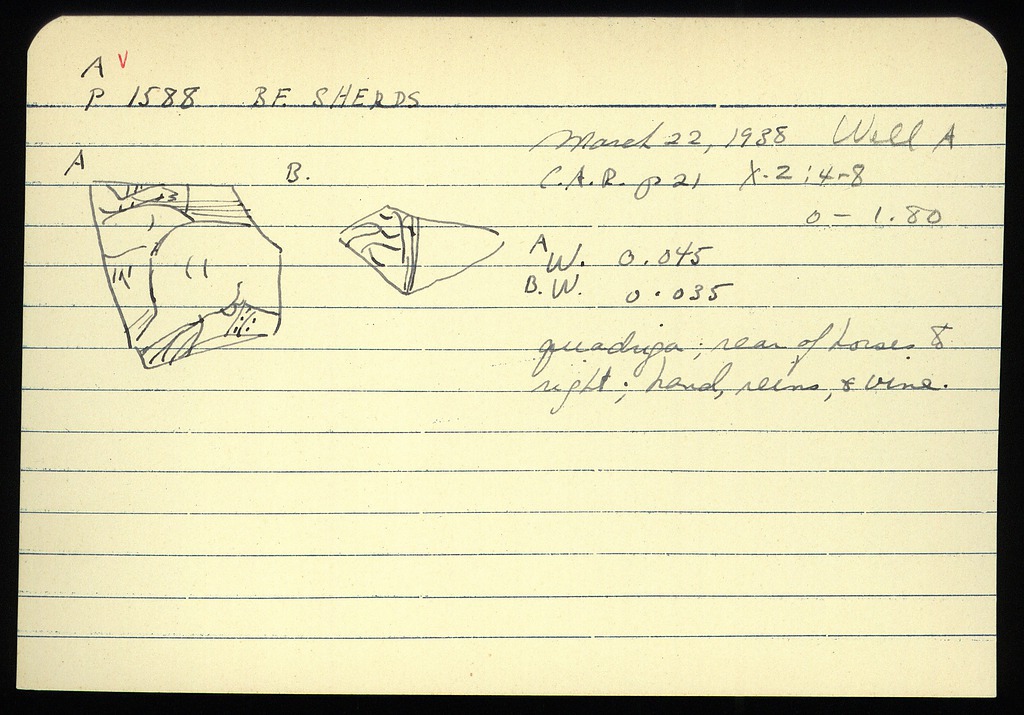 A v
P 1588 BF. SHERDS
March 22, 1938 Well A
A B.
C.A.R. p 21 X-2:4-8
0 - 1.80
A W. 0.045
B. W. 0.035
quadriga; rear of horses to
right; hand, reins, & vine.